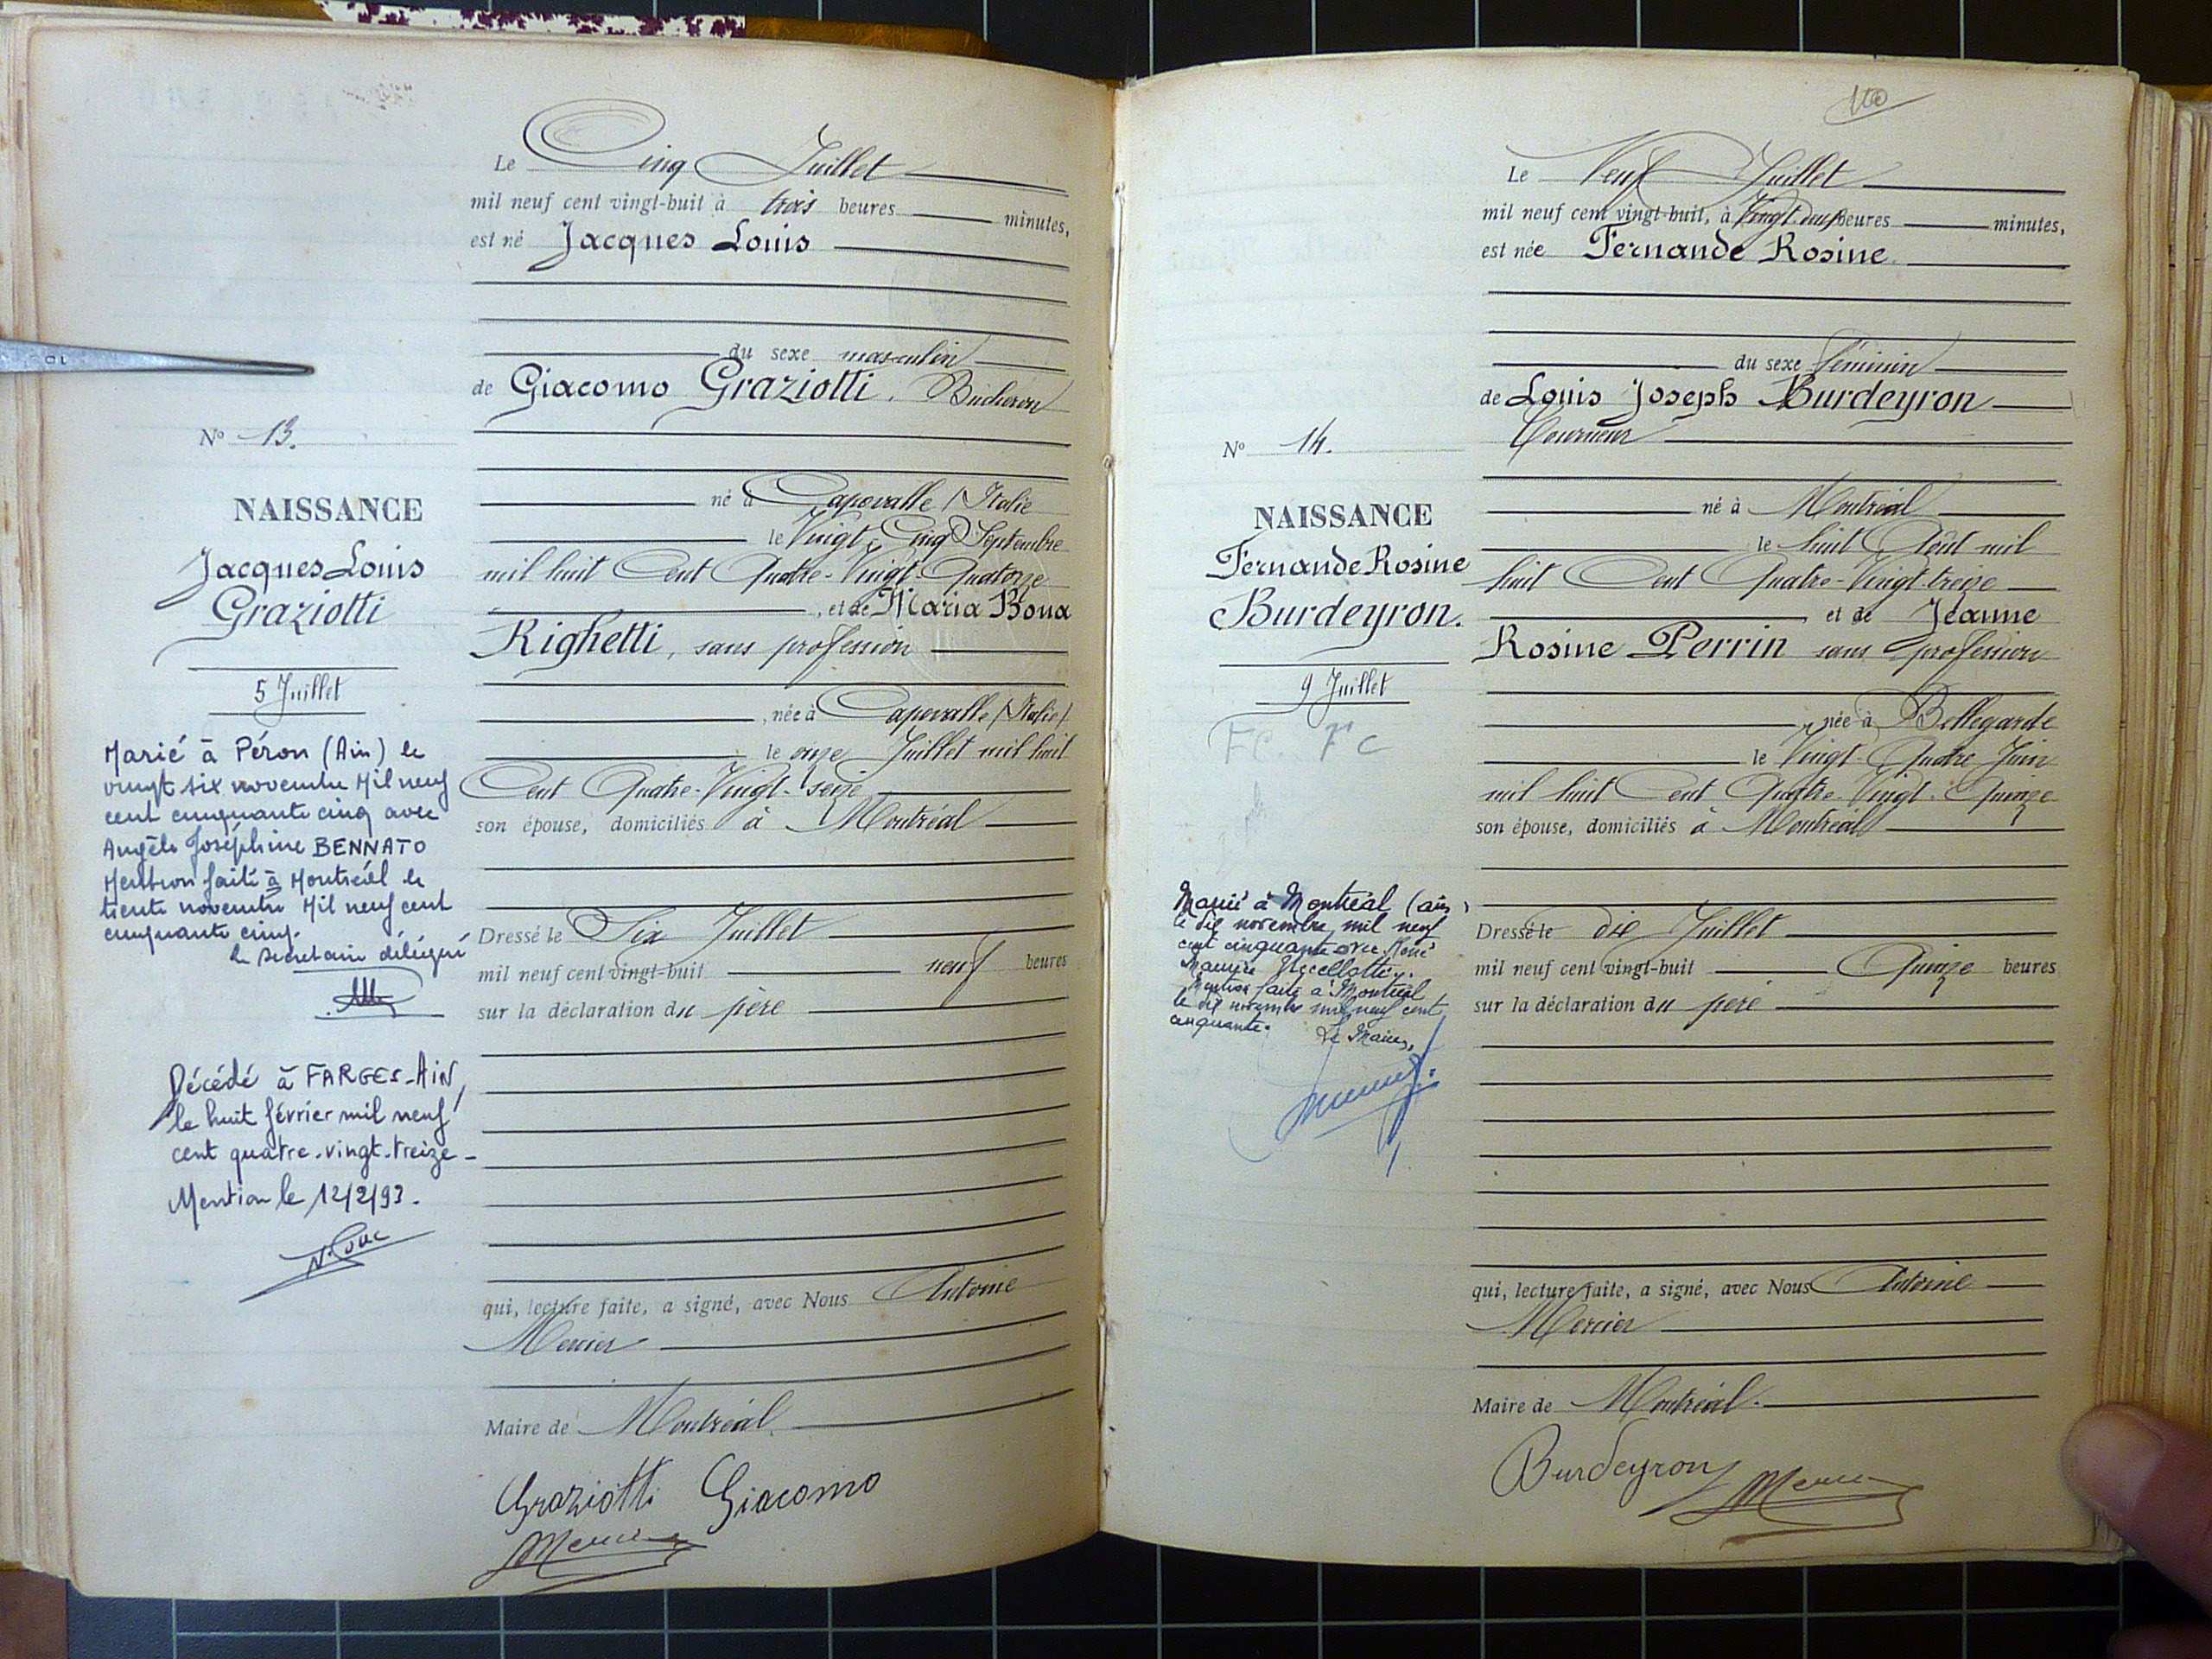 Le Cinq Juillet
mil neuf cent vingt-huit à trois heures minutes,
est né Jacques Louis
du sexe masculin
de Giacomo Graziotti, Bucheron
né à Capovalle (Italie
le Vingt-Cinq Septembre
mil huit Cent Quatre-Vingt-Quatorze
, et de Maria Bona
Righetti, sans profession
, née à Capovalle (Italie)
le onze Juillet mil huit
Cent Quatre-Vingt-seize
son épouse, domiciliés à Montréal
Dressé le Six Juillet
mil neuf cent vingt-huit neuf heures
sur la déclaration du père
qui, lecture faite, a signé, avec Nous Antoine
Mercier
Maire de Montréal
Graziotti Giacomo
Mercier
No 13.
NAISSANCE
Jacques Louis
Graziotti
5 Juillet
Marié à Péron (Ain) le
vingt six novembre Mil neuf
cent cinquante cinq avec
Angèle Joséphine BENNATO
Mention faite à Montréal le
trente novembre Mil neuf cent
cinquante cinq.
le secrétaire délégué
Décédé à FARGES-AIN,
le huit février mil neuf
cent quatre-vingt-treize-
Mention le 12/2/93.
110
Le Neuf Juillet
mil neuf cent vingt-huit, à Vingt-deux heures minutes,
est née Fernande Rosine
du sexe féminin
de Louis Joseph Burdeyron
Tourneur
né à Montréal
le huit Août mil
huit Cent Quatre-Vingt-treize
et de Jeanne
Rosine Perrin sans profession
, née à Bellegarde
le Vingt-Quatre Juin
mil huit Cent Quatre-Vingt-Quinze
son épouse, domiciliés à Montréal
Dressé le dix Juillet
mil neuf cent vingt-huit Quinze heures
sur la déclaration du père
qui, lecture faite, a signé, avec Nous Antoine
Mercier
Maire de Montréal.
Burdeyron Mercier
No 14.
NAISSANCE
Fernande Rosine
Burdeyron.
9 Juillet
FC. FC
Marié à Montréal (ain)
le dix novembre mil neuf
cent cinquante avec René
Maurice
Mention faite à Montréal
le dix novembre mil neuf cent
cinquante. Le Maire,